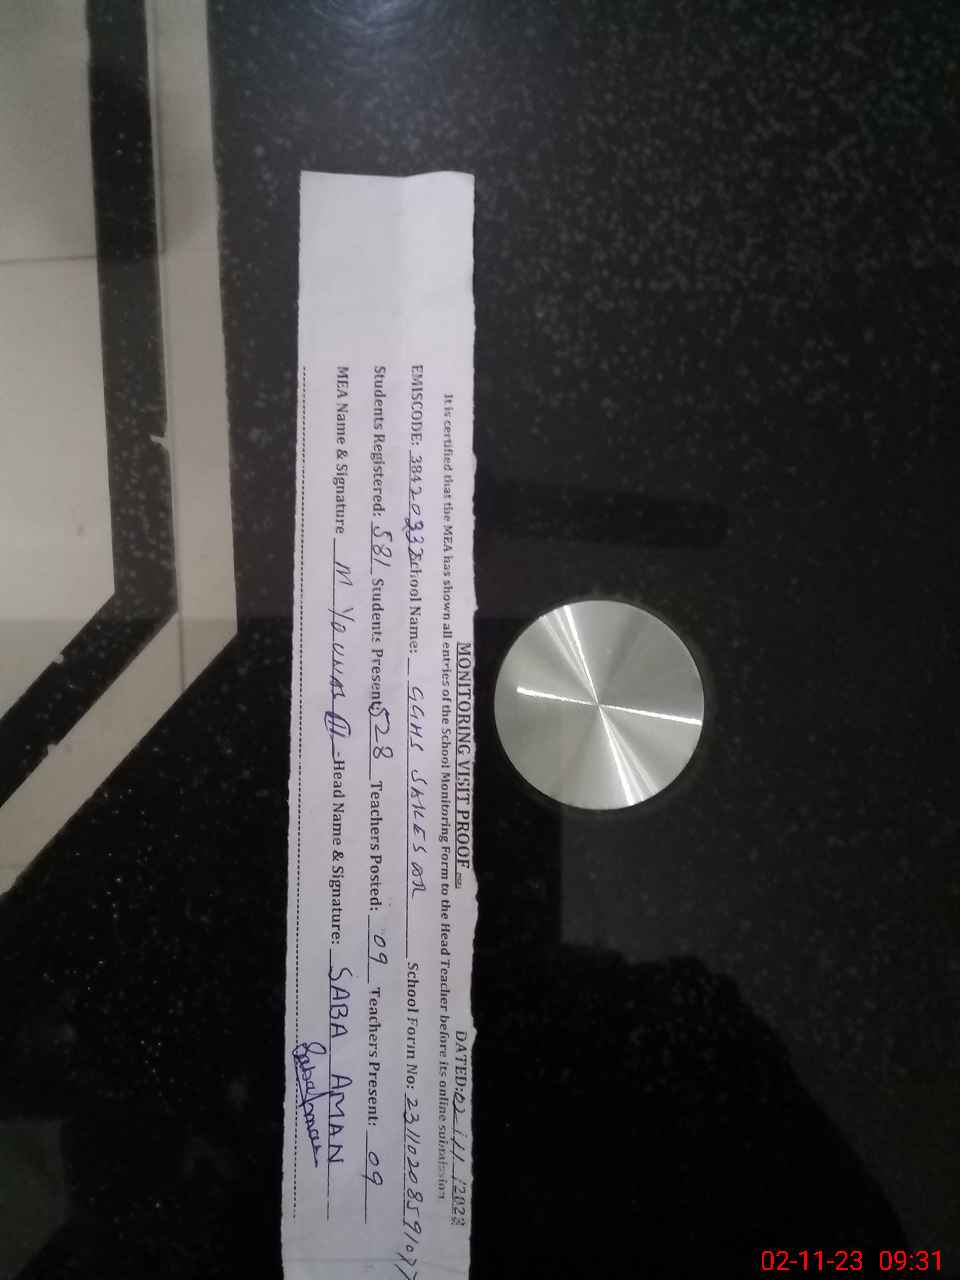 MONITORING VISIT PROOF DATED: 02/11/2023
It is certified that the MEA has shown all entries of the School Monitoring Form to the Head Teacher before its online submission
EMISCODE: School Name: GGHS School Form No:
Students Registered: 581 Students Present: 528 Teachers Posted: 09 Teachers Present: 09
MEA Name & Signature M Younas Head Name & Signature: SABA AMAN
Saba Aman
02-11-23 09:31